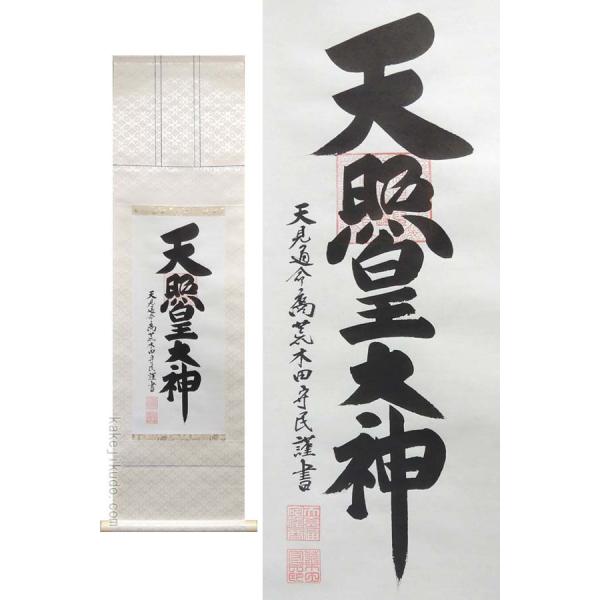 天照皇大神
天見通命裔荒木田守民謹書
天照皇大神
天見通命裔荒木田守民謹書
kakejikudo-com